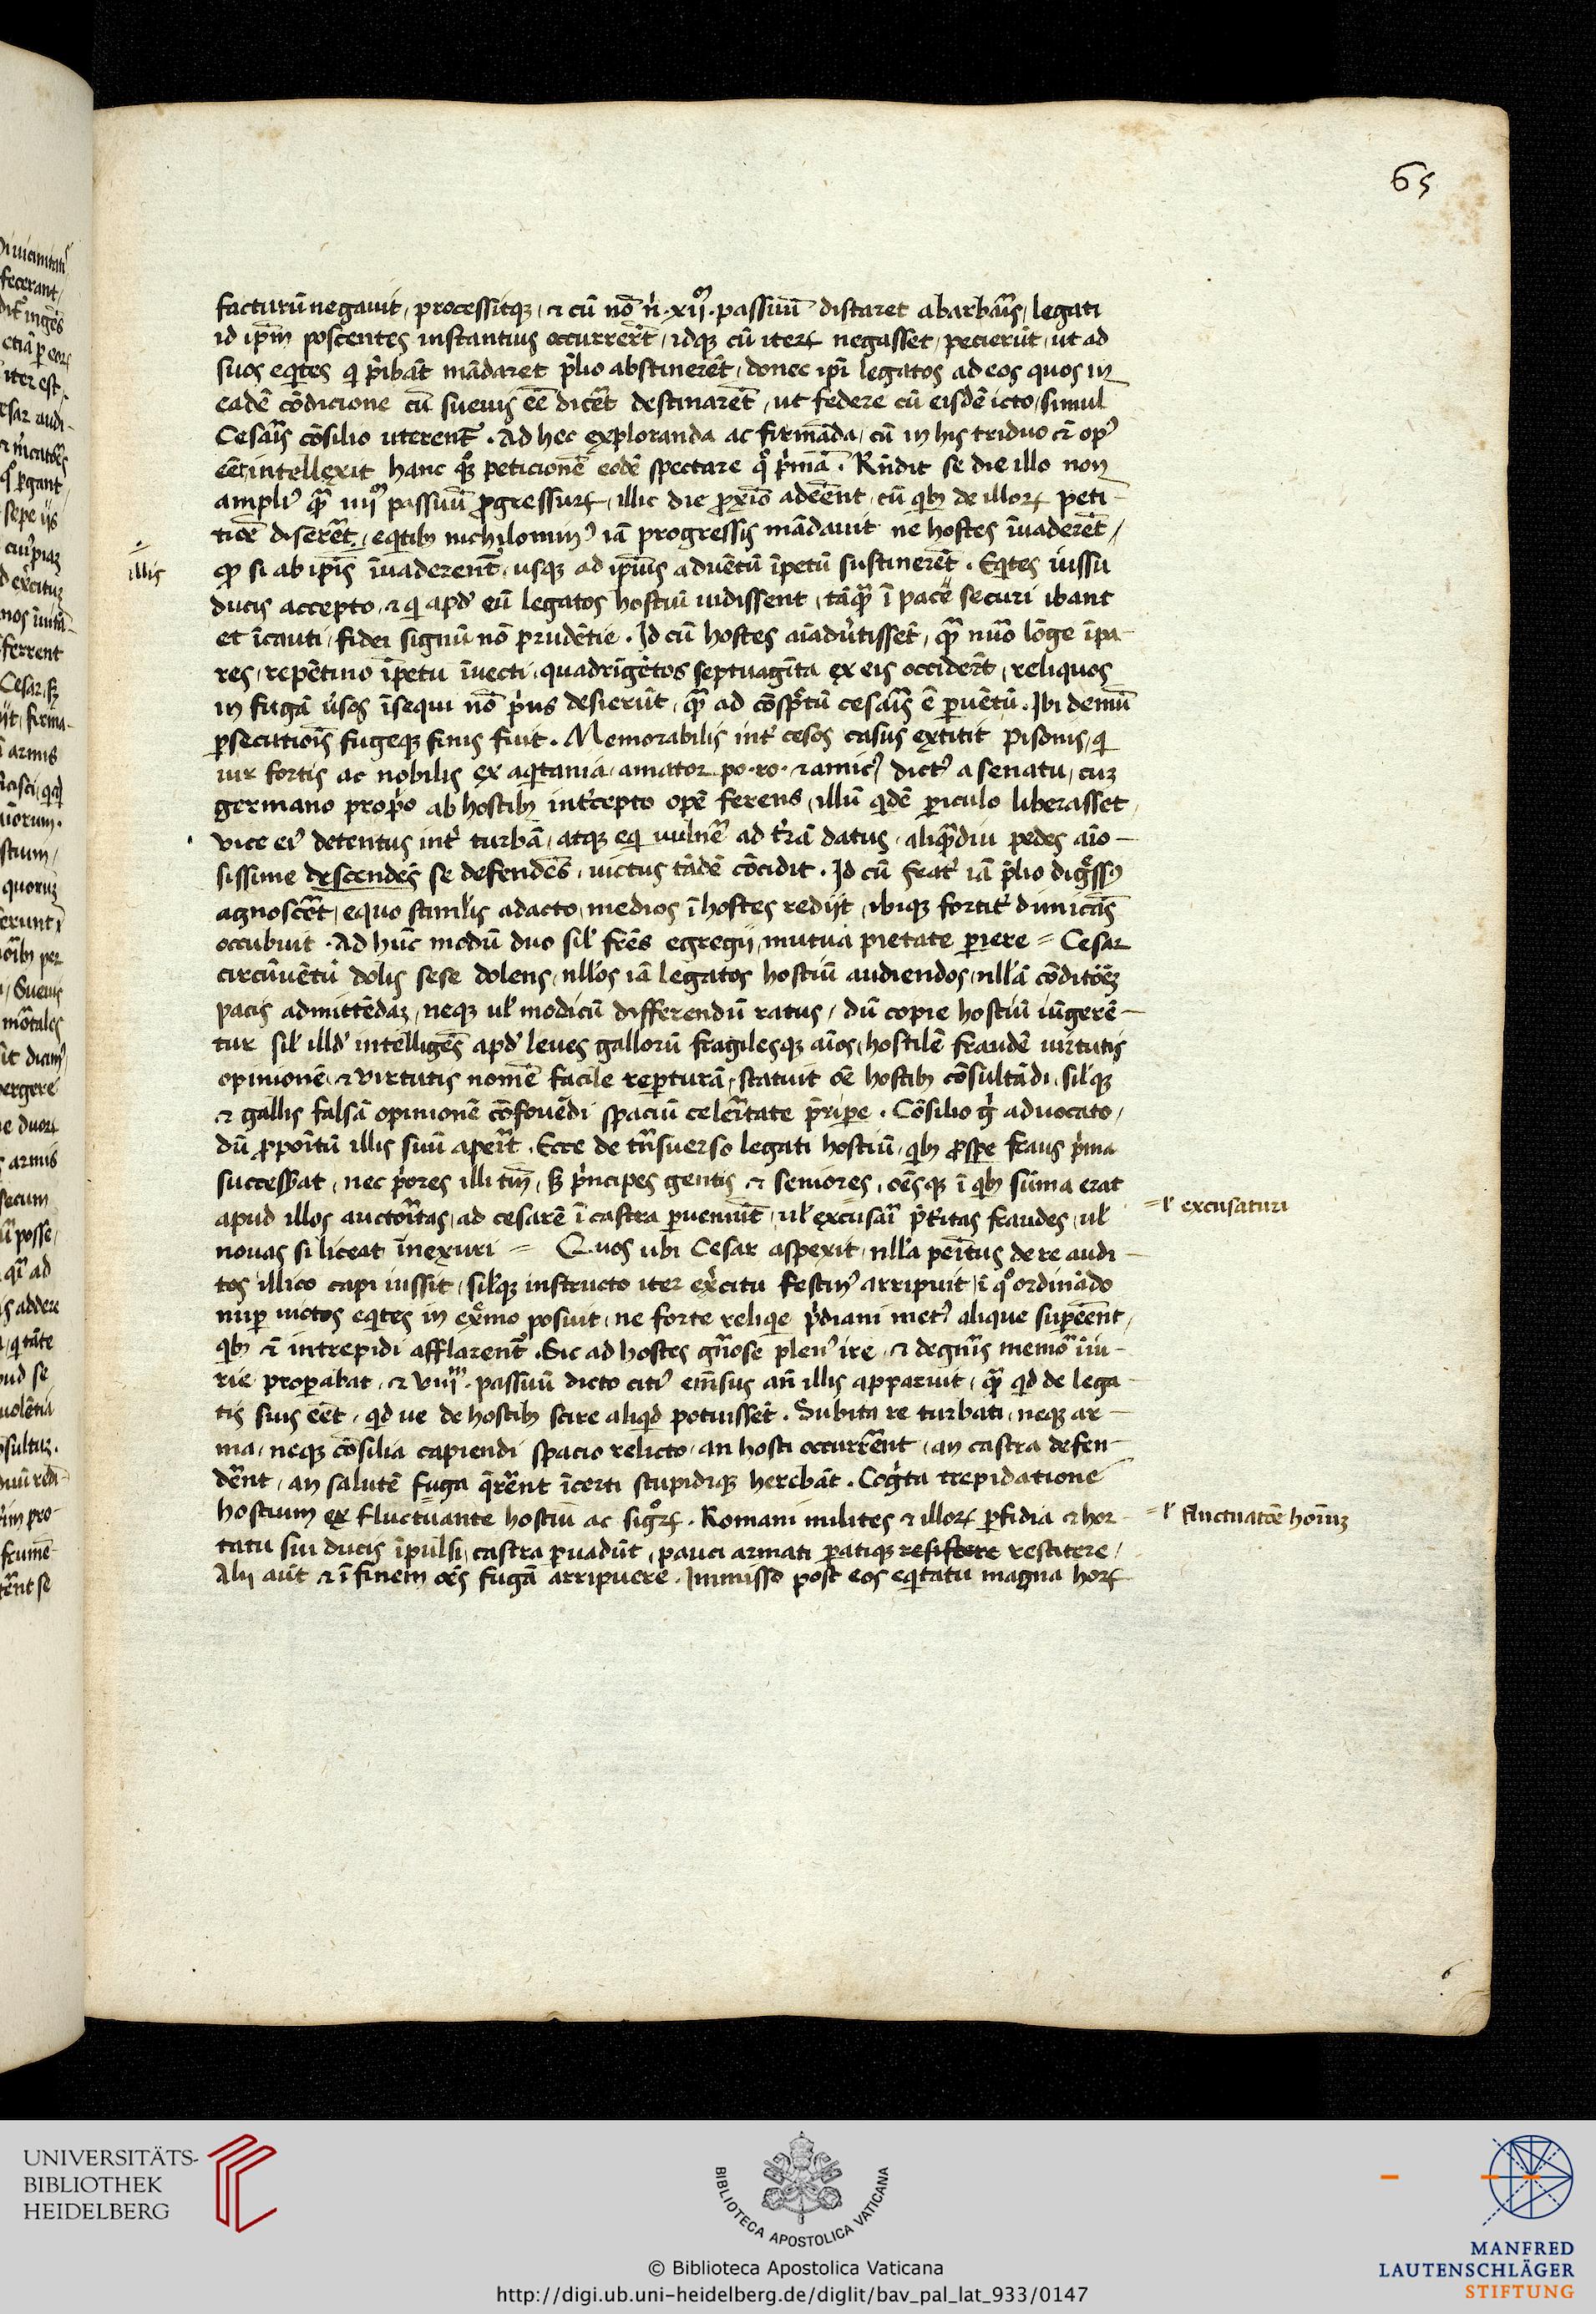 65
facturū negauit / processitqꝫ / ⁊ cū nō n̄ · xij · passuū distaret abarbaris / legati
id ipm̄ poscentes instantius occurrerēt / idqꝫ cū iteꝝ negasset / pecierūt / ut ad
suos eqites qi p̄ibāt mādaret p̄lio abstinerēt / donec ipi legatos ad eos quos in
eadē cōdicione cū sueuis eē dicer̄t destinarēt / ut federe cū eisdē icto / simul
Cesaris cōsilio uterent̄ . Ad hec exploranda ac firmāda / cū in his triduo opꝰ
eēt / intellexit hanc qꝫ peticionē eodē spectare qͦ p̄mā . Rn̄dit se die illo non
ampliꝰ qͣ iiij passuū ꝓgressuꝝ / illic die ꝓxīo adeēnt / cū qibꝫ de illoꝝ peti-
ticē diserēt / eqitibꝫ nichilominꝰ iā progressis mādauit ne hostes īuaderēt /
ꝙ si ab ipīs īuaderent̄ / usqꝫ ad ipīus aduētū īpetū sustinerēt . Eqites iussu
illis
ducis accepto / ⁊ qi apd̄ eū legatos hostiū uidissent / tāqͣ ī pace securi ibant
et īcauti / fidei signū nō prudētie . Id cū hostes aīaduertissēt / qͣ nūo lōge īpa-
res / repētino īpetu īuecti / quadrīgētos septuagīta ex eis occiderūt / reliquos
in fugā ūsos īsequi nō pͥus desierūt / qͣ ad cōspctū cesaris ē ꝑuētū . Ibi demū
ꝑsecutiōis fugeqꝫ finis fuit . Memorabilis int̄ cesos casus extitit Pisonis / qi
uir fortis ac nobilis ex aqitania / amator po · ro · ⁊ amicꝰ dictꝰ a senatu / cuꝫ
germano propͥo ab hostibꝫ int̄cepto opē ferens / illū qidē ꝑiculo liberasset /
vice eiꝰ detentus int̄ turbā / atqꝫ eqi uulnē ad t̄rā datus / aliqͣdiu pedes aīo-
sissime descendēs se defendēs / uictus tādē cōcidit . Id cū frat̄ iā p̄lio digressꝰ
agnoscēt / equo stimlis adacto / medios ī hostes redijt / ibiqꝫ fortit̄ dimicās
occubuit . Ad hūc modū duo sil̄ frēs egregij / mutua pietate ꝑiere = Cesar
circūuētū dolis sese dolens / nll̄os iā legatos hostiū audiendos / nll̄ā cōditōēꝫ
pacis admittēdaꝫ / neqꝫ ul̄ modicū differendū ratus / dū copie hostiū iūgerē-
tur sil̄ illd̄ intelligēs apd̄ leues gallorū fragilesqꝫ aīos / hostilē fraudē uirtutis
opinionē / ⁊ virtutis nomē facile reꝑturā / statuit oē hostibꝫ cōsultādi / sil̄qꝫ
⁊ gallis falsā opinionē cōfouēdi spaciū celeritate p̄riꝑe . Cōsilio gͥ aduocato /
dū ꝓpoītū illis suū aꝑerit . Ecce de trāsuerso legati hostiū / qibꝫ ꝓsꝑe fraus pͥma
successerat / nec pͥores illi tm̄ / sꝫ pͥncipes gentis / ⁊ seniores / oēsqꝫ ī qibꝫ sūma erat
apud illos auctoritas / ad cesarē ī castra ꝑueniūt / ul̄ excusari p̄teritas fraudes / ul̄
= ul̄ excusaturi
nouas si liceat īnexuri = Quos ubi Cesar aspexit / nll̄a penitus de re audi-
tos illico capi iussit / sil̄qꝫ instructo iter exercitu festinꝰ arripuit / ī qͦ ordinādo
nuꝑ uictos eqites in extͤmo posuit / ne forte reliqie pͥdiani metꝰ alique suꝑeēnt /
qibꝫ ⁊ intrepidi afflarent̄ . Sic ad hostes gn̄ose plenꝰ ire / ⁊ degn̄is memor iniu-
rie proꝑabat / ⁊ viij · passuū dicto citiꝰ emēsus an̄ illis apparuit / qͣ qid de lega-
tis suis eēt / qid ue de hostibꝫ scire aliqid potuissēt . Subita re turbati / neqꝫ ar-
ma / neqꝫ cōsilia capiendi spacio relicto / an hosti occurrent / an castra defen-
derent / an salutē fuga qͣrerent īcerti stupidiqꝫ herebāt . Cogͥta trepidatione
hostium ex fluctuante hostiū ac signoꝝ . Romani milites ⁊ illoꝝ ꝑfidia ⁊ hor-
= ul̄ fluctuatōe hoīnuꝫ
tatu sui ducis īpulsi / castra ꝑuadūt / pauci armati ꝑatiqꝫ resistere restitere /
Alij aūt ⁊ ī finem oēs fugā arripuere . Immisso post eos eqitatu magna hoꝝ
UNIVERSITÄTS-
BIBLIOTHEK
HEIDELBERG
BIBLIOTECA APOSTOLICA VATICANA
© Biblioteca Apostolica Vaticana
http://digi.ub.uni-heidelberg.de/diglit/bav_pal_lat_933/0147
MANFRED
LAUTENSCHLÄGER
STIFTUNG